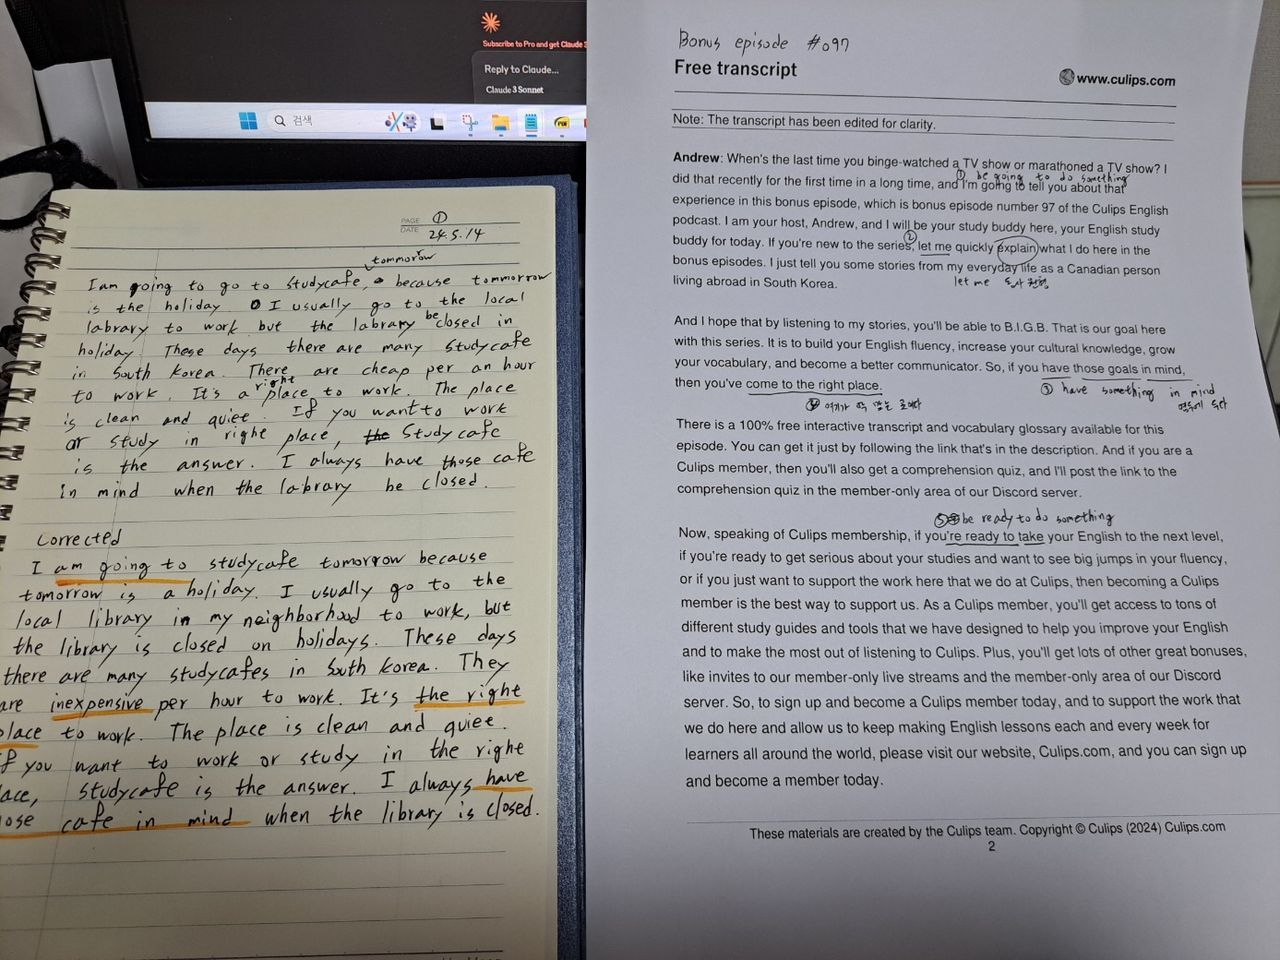 Subscribe to Pro and get Claude 3
Reply to Claude...
Claude 3 Sonnet
검색
PAGE ①
DATE 24.5.14
tommorow
I am going to go to studycafe, because tommorow
is the holiday. I usually go to the local
labrary to work but the labrary be closed in
holiday. Those days there are many studycafe
in South Korea. There are cheap per an hour
to work. It's a right place to work. The place
is clean and quiet. If you want to work
or study in right place, the Study cafe
is the answer. I always have those cafe
in mind when the labrary be closed.
Corrected
I am going to studycafe tomorrow because
tomorrow is a holiday. I usually go to the
local library in my neighborhood to work, but
the library is closed on holidays. These days
there are many studycafes in South Korea. They
are inexpensive per hour to work. It's the right
place to work. The place is clean and quiet.
If you want to work or study in the right
lace, studycafe is the answer. I always have
ose cafe in mind when the library is closed.
Bonus episode #097
Free transcript
www.culips.com
Note: The transcript has been edited for clarity.
Andrew: When's the last time you binge-watched a TV show or marathoned a TV show? I
① be going to do something
did that recently for the first time in a long time, and I'm going to tell you about that
experience in this bonus episode, which is bonus episode number 97 of the Culips English
podcast. I am your host, Andrew, and I will be your study buddy here, your English study
②
buddy for today. If you're new to the series, let me quickly explain what I do here in the
bonus episodes. I just tell you some stories from my everyday life as a Canadian person
living abroad in South Korea.
let me 동사원형
And I hope that by listening to my stories, you'll be able to B.I.G.B. That is our goal here
with this series. It is to build your English fluency, increase your cultural knowledge, grow
your vocabulary, and become a better communicator. So, if you have those goals in mind,
then you've come to the right place.
③ have something in mind
염두에 두다
④ 여기가 딱 맞는
There is a 100% free interactive transcript and vocabulary glossary available for this
episode. You can get it just by following the link that's in the description. And if you are a
Culips member, then you'll also get a comprehension quiz, and I'll post the link to the
comprehension quiz in the member-only area of our Discord server.
⑤ be ready to do something
Now, speaking of Culips membership, if you're ready to take your English to the next level,
if you're ready to get serious about your studies and want to see big jumps in your fluency,
or if you just want to support the work here that we do at Culips, then becoming a Culips
member is the best way to support us. As a Culips member, you'll get access to tons of
different study guides and tools that we have designed to help you improve your English
and to make the most out of listening to Culips. Plus, you'll get lots of other great bonuses,
like invites to our member-only live streams and the member-only area of our Discord
server. So, to sign up and become a Culips member today, and to support the work that
we do here and allow us to keep making English lessons each and every week for
learners all around the world, please visit our website, Culips.com, and you can sign up
and become a member today.
These materials are created by the Culips team. Copyright © Culips (2024) Culips.com
2